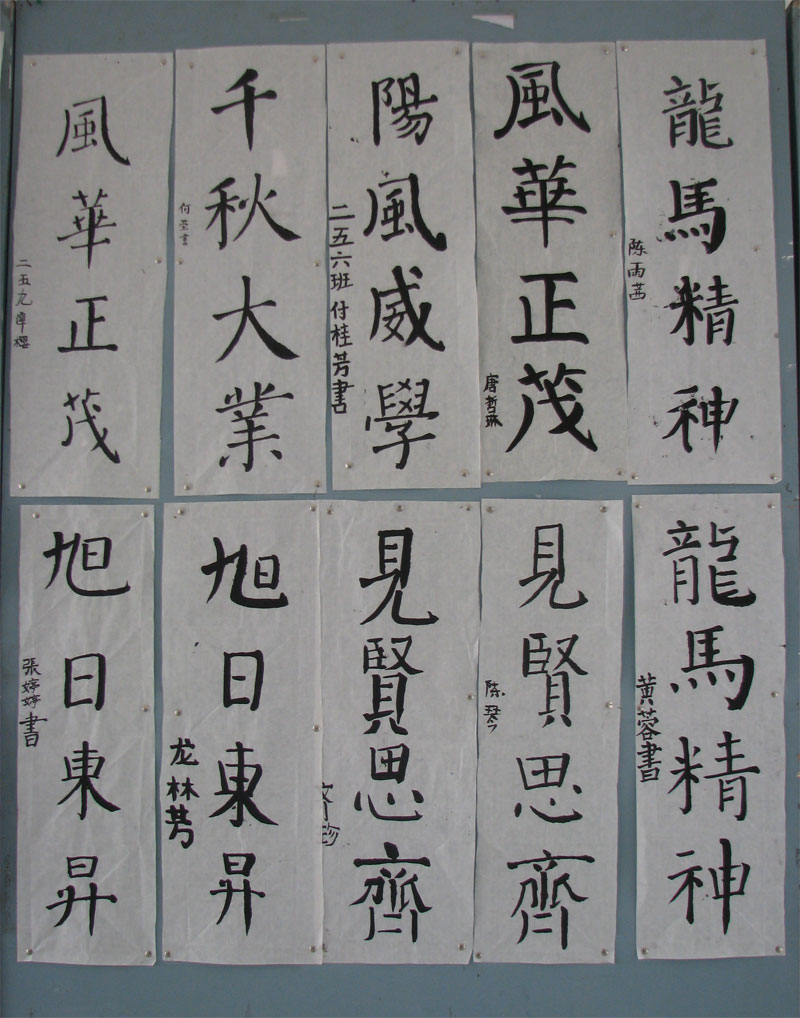 龍馬精神
陈雨茜
風華正茂
唐哲琳
陽風威學
二五六班付桂芳書
千秋大業
風華正茂
二五九
龍馬精神
黄蓉書
見賢思齊
陈琴
見賢思齊
旭日東昇
龙林芳
旭日東昇
張婷婷書